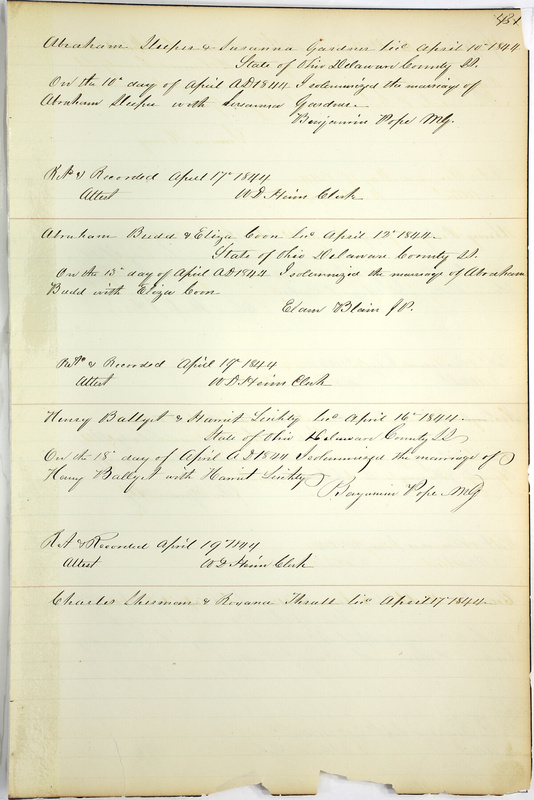 Abraham Sleeper & Susanna Gardner lic April 10th 1844
State of Ohio Delaware County SS.
On the 10th day of April AD 1844 I solemnized the marriage of
Abraham Sleeper with Susanna Gardner
Benjamin Pope MG.
Ret & Recorded April 17th 1844
Attest W D Heim Clerk
Abraham Budd & Eliza Coon lic April 12th 1844
State of Ohio Delaware County SS.
On the 13th day of April AD 1844 I solemnized the marriage of Abraham
Budd with Eliza Coon
Elam Blain J P.
Ret & Recorded April 19th 1844
Attest W D Heim Clerk
Henry Ballyet & Harriet lic April 16th 1844
State of Ohio Delaware County SS
On the 18th day of April AD 1844 I solemnized the marriage of
Henry Ballyet with Harriet
Benjamin Pope MG
Ret & Recorded April 19th 1844
Attest W D Heim Clerk
Charles Sherman & Roxana Thrall lic April 17th 1844